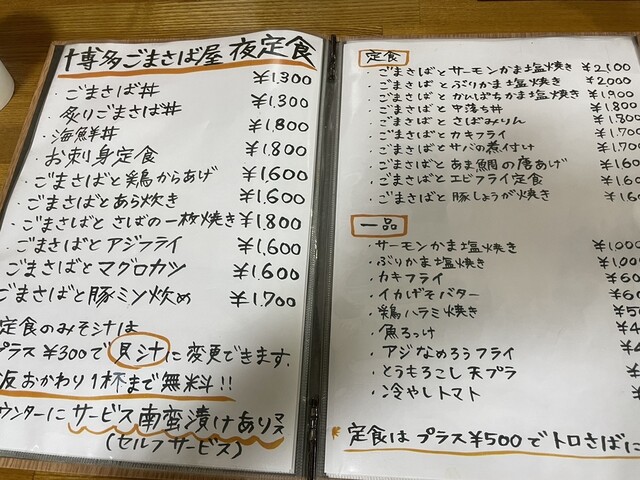 博多ごまさば屋 夜定食
・ごまさば丼 ¥1,300
・炙りごまさば丼 ¥1,300
・海鮮丼 ¥1,800
・お刺身定食 ¥1,800
・ごまさばと鶏からあげ ¥1,600
・ごまさばとあら炊き ¥1,600
・ごまさばとさばの一枚焼き ¥1,800
・ごまさばとアジフライ ¥1,600
ごまさばとマグロカツ ¥1,600
ごまさばと豚ミン炒め ¥1,700
定食のみそ汁は
プラス¥300で貝汁に変更できます.
飯おかわり1杯まで無料!!
ウンターにサービス南蛮漬けあり
(セルフサービス)
定食
・ごまさばとサーモンかま塩焼き ¥2,100
・ごまさばとぶりかま塩焼き ¥2,000
・ごまさばとかんぱちかま塩焼き ¥1,900
・ごまさばと中落ち丼 ¥1,800
・ごまさばとさばみりん ¥1,800
・ごまさばとカキフライ ¥1,700
・ごまさばとサバの煮付け ¥1,700
・ごまさばとあま鯛の唐あげ ¥1,60
・ごまさばとエビフライ定食 ¥1,60
・ごまさばと豚しょうが焼き ¥1,60
一品
・サーモンかま塩焼き ¥1,000
・ぶりかま塩焼き ¥1,00
・カキフライ ¥60
・イカげそバター ¥60
・鶏ハラミ焼き ¥50
・魚ろっけ
・アジなめろうフライ
・とうもろこし天プラ
・冷やしトマト
定食はプラス¥500でトロさばに